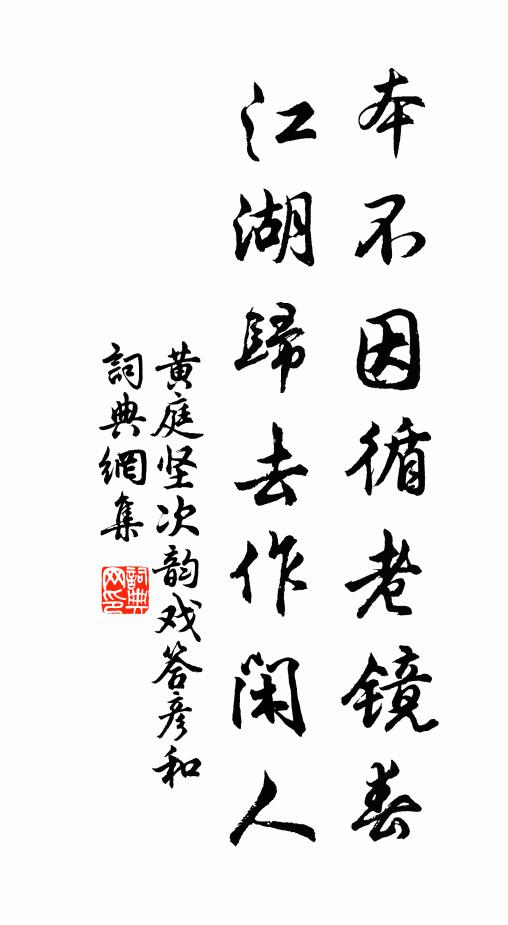 本不因循老镜春
江湖歸去作闲人
黄庭坚次韵戏答彦和
詞典網集
詞典网印